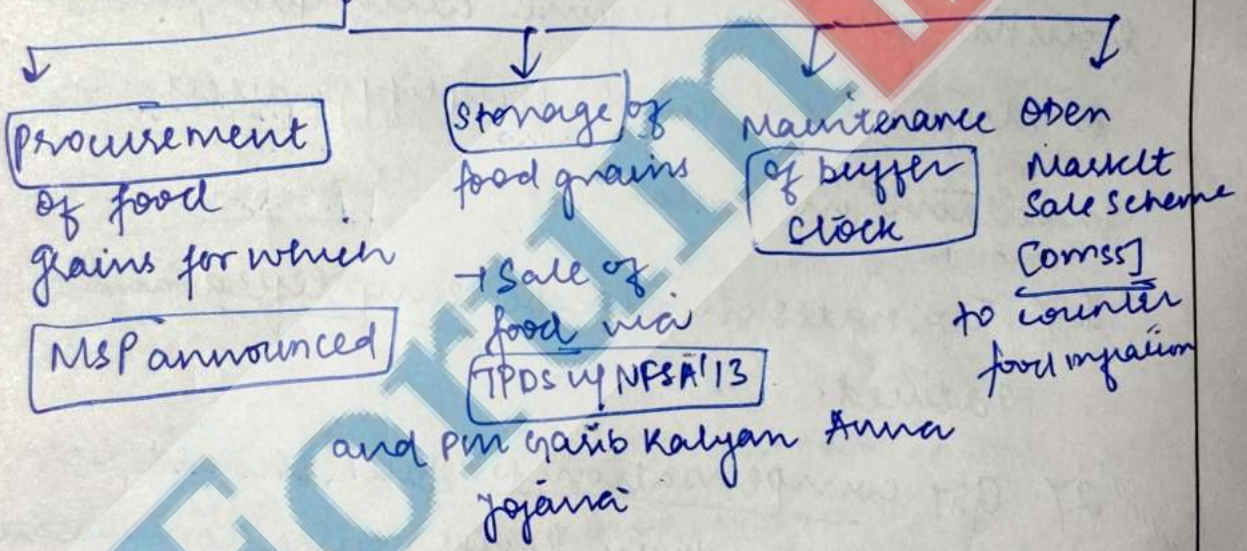 Procurement
of food
grains for which
MSP announced
Storage of
food grains
→ Sale of
food via
TPDS u/ NFSA'13
and PM Garib Kalyan Anna
Yojana
Maintenance
of buffer
stock
Open
Market
Sale Scheme
[OMSS]
to counter
food inflation
Forum